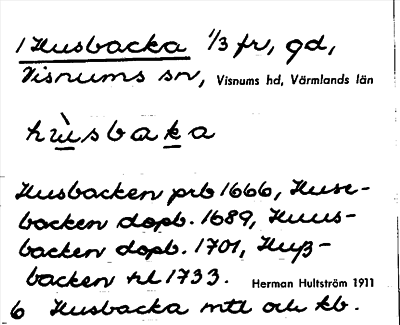 1 Husbacka 1/3 fr, gd,
Visnums sn, Visnums hd, Värmlands län
hùsbaka
Husbacken prb 1666, Huse-
backen dopb. 1689, Huus-
backen dopb. 1701, Huβ-
backen hl 1733. Herman Hultström 1911
6 Husbacka mtl och kb.